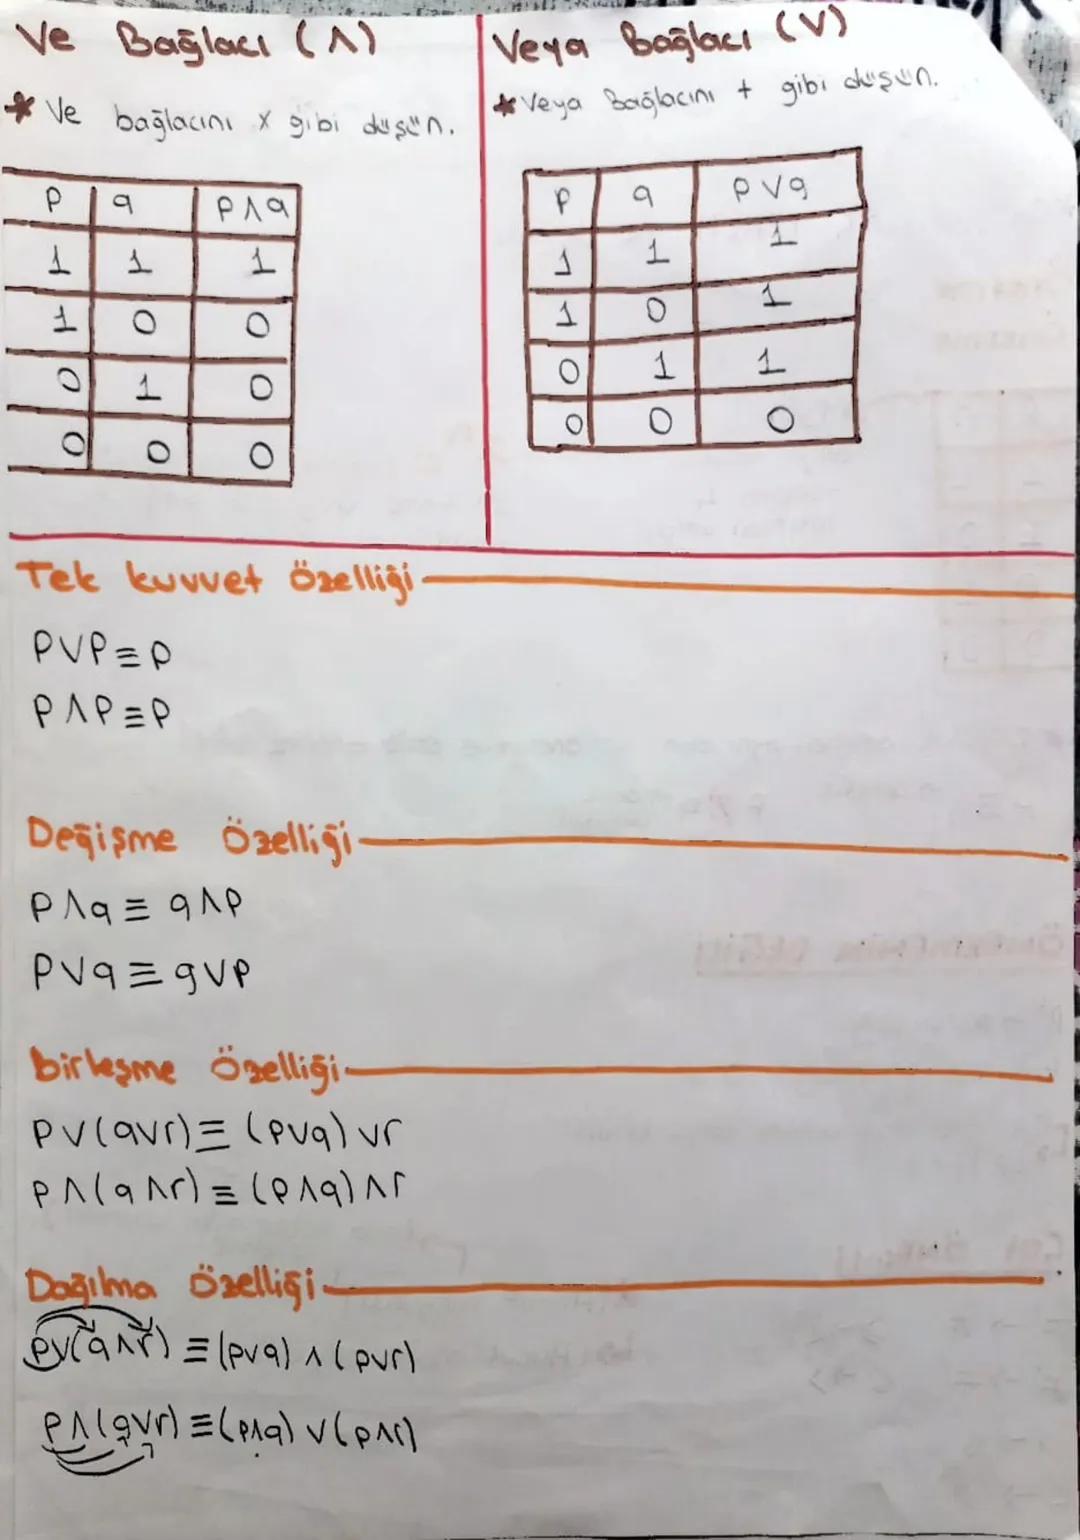 Ve Bağlacı (∧)
* Ve bağlacını x gibi düşün.
p q p∧q
1 1 1
1 0 0
0 1 0
0 0 0
Veya Bağlacı (∨)
* Veya Bağlacını + gibi düşün.
p q p∨q
1 1 1
1 0 1
0 1 1
0 0 0
Tek kuvvet Özelliği
p∨p≡p
p∧p≡p
Değişme Özelliği
p∧q≡q∧p
p∨q≡q∨p
birleşme Özelliği
p∨(q∨r)≡(p∨q)∨r
p∧(q∧r)≡(p∧q)∧r
Dağılma Özelliği
p∨(q∧r)≡(p∨q)∧(p∨r)
p∧(q∨r)≡(p∧q)∨(p∧r)